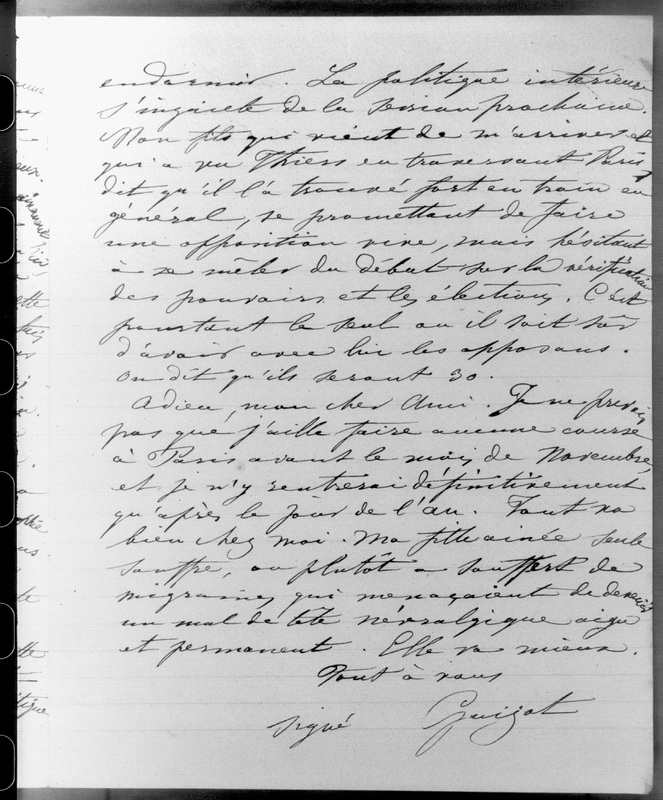 endormir. La politique intérieure
s'inquiète de la session prochaine.
Mon fils qui vient de m'arriver et
qui a vu Thiers en traversant Paris,
dit qu'il l'a trouvé fort en train en
général, se promettant de faire
une opposition vive, mais hésitant
à se mêler du débat sur la vérification
des pouvoirs et les élections. C'est
pourtant le seul où il soit sûr
d'avoir avec lui les opposans.
On dit qu'ils seront 30.
Adieu, mon cher Ami. Je ne prévois
pas que j'aille faire aucune course
à Paris avant le mois de Novembre,
et je n'y rentrerai définitivement
qu'après le jour de l'an. Tout va
bien chez moi. Ma fille ainée seule
souffre, ou plutôt a souffert de
migraines qui menaçaient de devenir
un mal de tête névralgique aigu
et permanent. Elle va mieux.
Tout à vous
signé Guizot